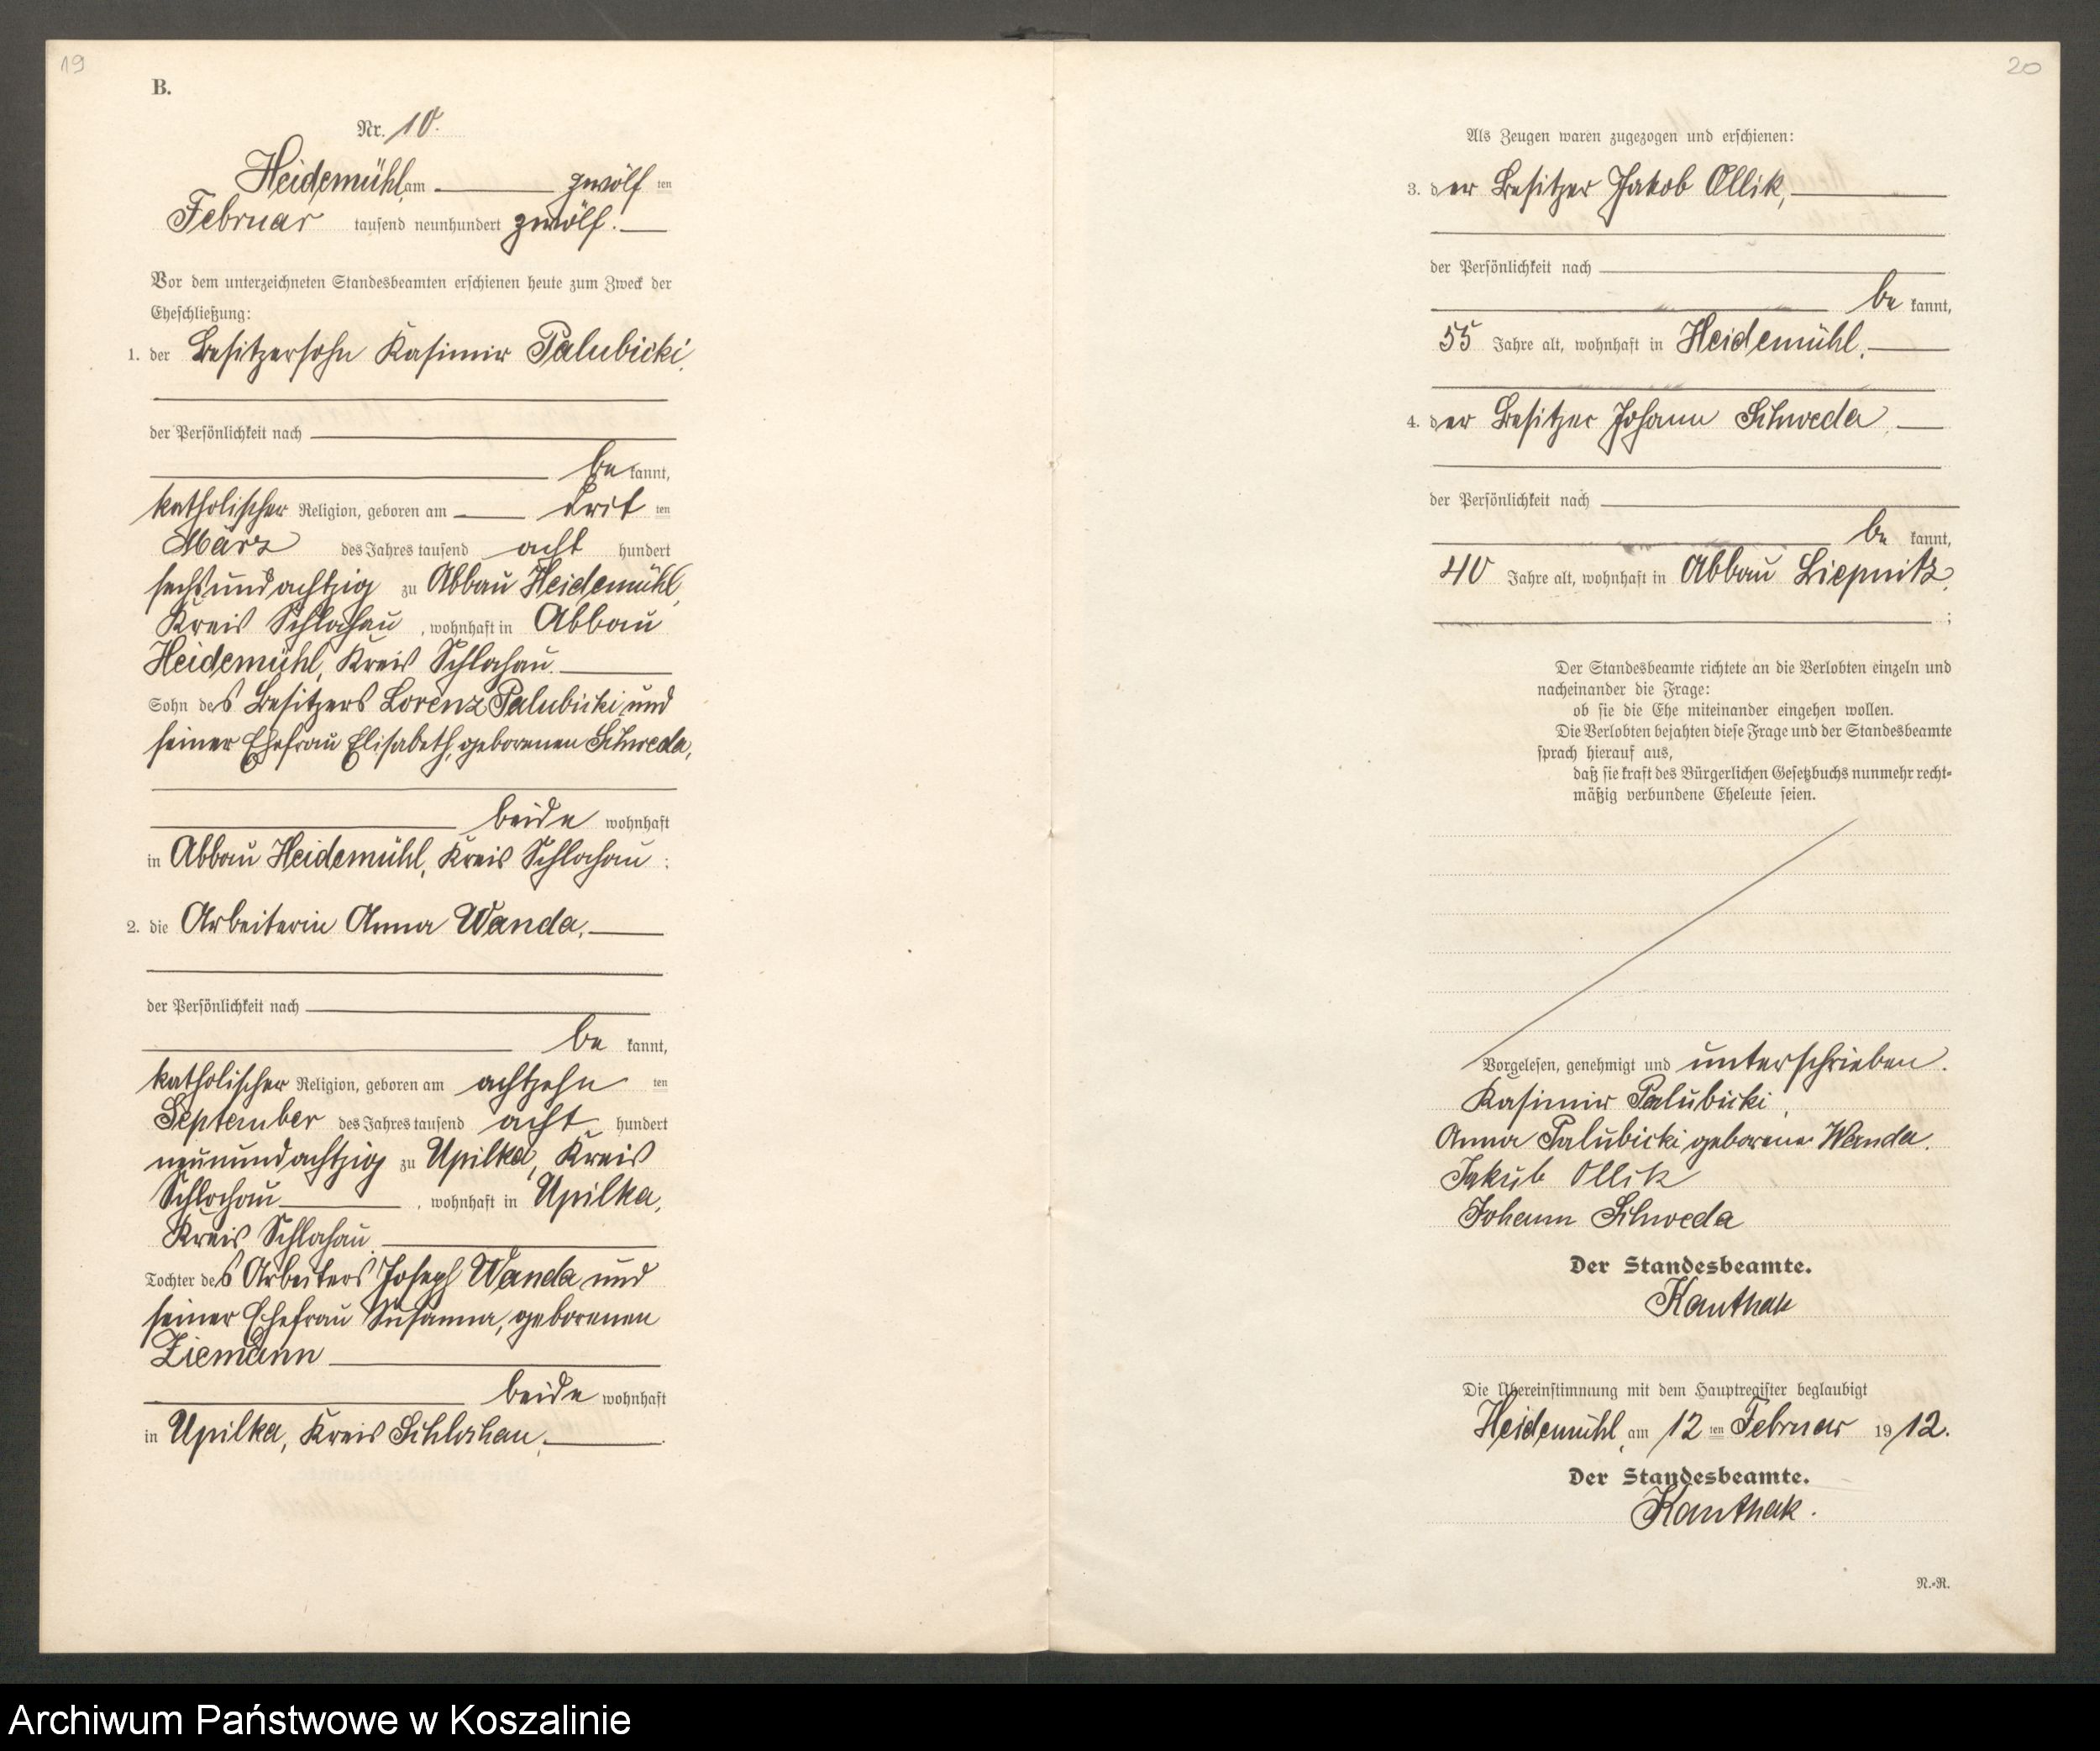 19
B.
Nr. 10.
Heidemühl, am zwölf ten
Februar tausend neunhundert zwölf.
Vor dem unterzeichneten Standesbeamten erschienen heute zum Zweck der
Eheschließung:
1. der Besitzersohn Kasimir Palubicki,
der Persönlichkeit nach
be kannt,
katholischer Religion, geboren am drit ten
März des Jahres tausend acht hundert
sechsundachtzig zu Abbau Heidemühl,
Kreis Schlochau, wohnhaft in Abbau
Heidemühl, Kreis Schlochau.
Sohn des Besitzers Lorenz Palubicki und
seiner Ehefrau Elisabeth, geborenen Schweda,
beide wohnhaft
in Abbau Heidemühl, Kreis Schlochau;
2. die Arbeiterin Anna Wanda,
der Persönlichkeit nach
be kannt,
katholischer Religion, geboren am achtzehn ten
September des Jahres tausend acht hundert
neunundachtzig zu Upilka, Kreis
Schlochau, wohnhaft in Upilka,
Kreis Schlochau
Tochter des Arbeiters Joseph Wanda und
seiner Ehefrau Susanna, geborenen
Ziemann
beide wohnhaft
in Upilka, Kreis Schlochau.
20
Als Zeugen waren zugezogen und erschienen:
3. der Besitzer Jakob Ollik,
der Persönlichkeit nach
be kannt,
55 Jahre alt, wohnhaft in Heidemühl,
4. der Besitzer Johann Schweda,
der Persönlichkeit nach
be kannt,
40 Jahre alt, wohnhaft in Abbau Liepnitz,
;
Der Standesbeamte richtete an die Verlobten einzeln und
nacheinander die Frage:
ob sie die Ehe miteinander eingehen wollen.
Die Verlobten bejahten diese Frage und der Standesbeamte
sprach hierauf aus,
daß sie kraft des Bürgerlichen Gesetzbuchs nunmehr recht-
mäßig verbundene Eheleute seien.
Vorgelesen, genehmigt und unterschrieben.
Kasimir Palubicki,
Anna Palubicki geborene Wanda.
Jakub Ollik
Johann Schweda
Der Standesbeamte.
Kanthak
Die Übereinstimmung mit dem Hauptregister beglaubigt
Heidemühl, am 12 ten Februar 1912.
Der Standesbeamte.
Kanthak.
N.-R.
Archiwum Państwowe w Koszalinie